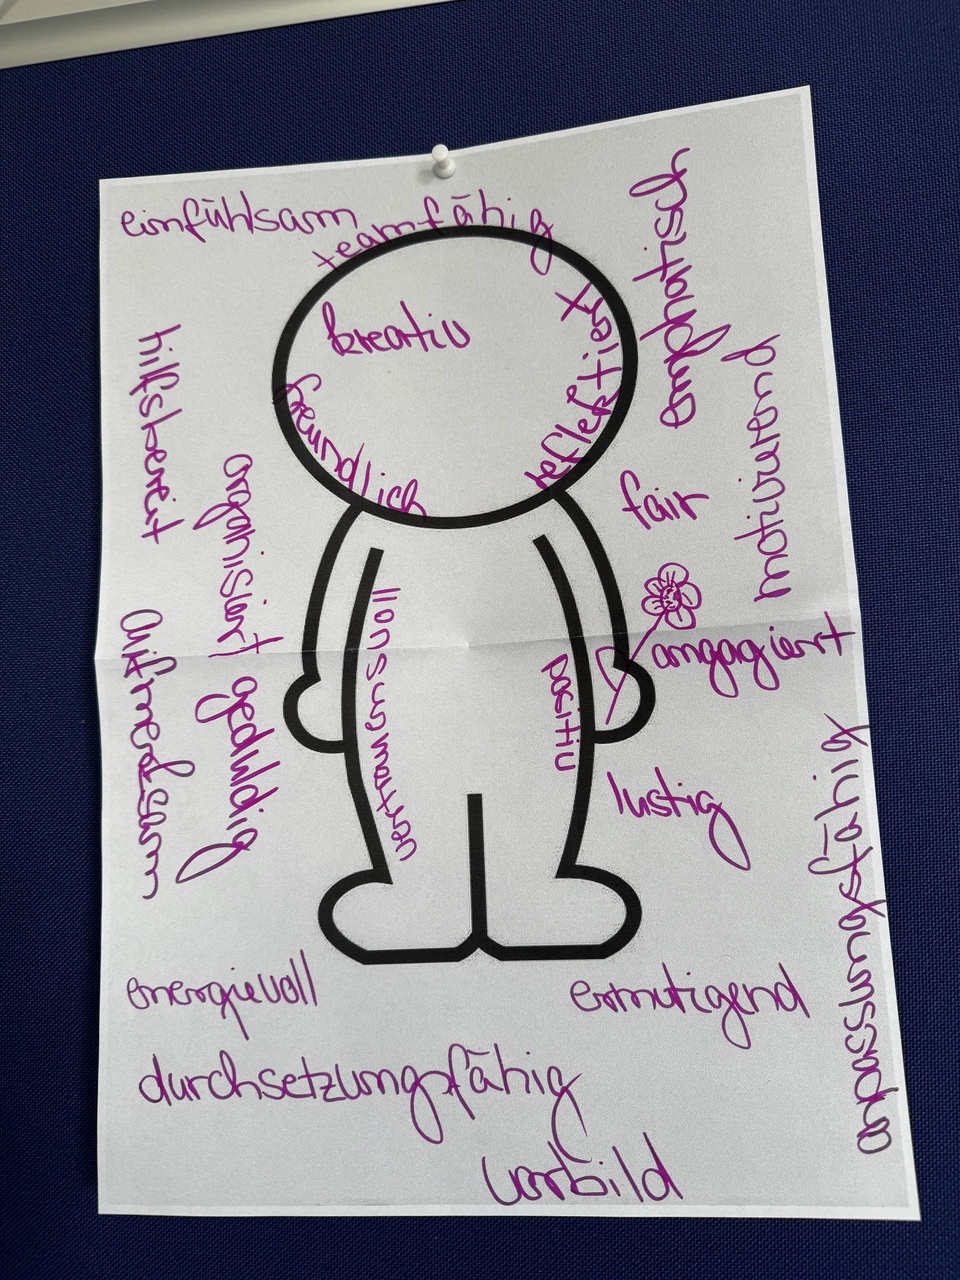 einfühlsam
teamfähig
kreativ
freundlich
reflektiert
emphatisch
motivierend
hilfsbereit
organisiert
fair
angagiert
aufmerksam
geduldig
verantwortungsvoll
positiv
lustig
anpassungsfähig
energievoll
ermutigend
durchsetzungsfähig
Vorbild